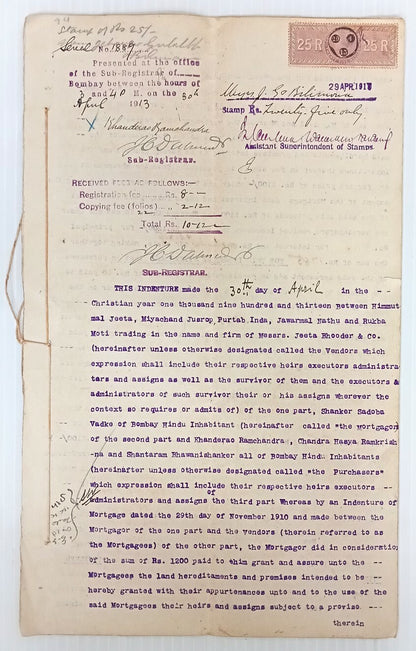 94
Stamp of Rs 25/-
Serial No. 1889
Presented at the office
of the Sub-Registrar of
Bombay between the hours of
3 and 4 P. M. on the 30th
April 1913
25 R
25 R
29 APR 1913
Stamp Rs. Twenty five only,
Assistant Superintendent of Stamps.
x Khanderao Ramchandra
SUB-REGISTRAR.
RECEIVED FEES AS FOLLOWS:—
Registration fee Rs. 8 --
Copying fee (folios) ,, 2-12
22
Total Rs. 10-12
SUB-REGISTRAR.
THIS INDENTURE made the 30th day of April in the --
Christian year one thousand nine hundred and thirteen Between Himmut
mal Jeeta, Miyachand Jusrop Purtab Inda, Jawarmal Nathu and Rukba
Moti trading in the name and firm of Messrs. Jeeta Bhooder & CO.
(hereinafter unless otherwise designated called the Vendors which
expression shall include their respective heirs executors administra-
tors and assigns as well as the survivor of them and the executors &
administrators of such survivor their or his assigns wherever the
context so requires or admits of) of the one part, Shanker Sadoba
Vadke of Bombay Hindu Inhabitant (hereinafter called "the Mortgagor
of the second part and Khanderao Ramchandra, Chandra Rasya Ramkrish
-na and Shantaram Bhawanishanker all of Bombay Hindu Inhabitants
(hereinafter unless otherwise designated called "the Purchasers"
which expression shall include their respective heirs executors --
administrators and assigns of the third part Whereas by an Indenture of
Mortgage dated the 29th day of November 1910 and made between the
Mortgagor of the one part and the Vendors (therein referred to as
the Mortgagees) of the other part, the Mortgagor did in consideration
of the sum of Rs. 1200 paid to him grant and assure unto the --
Mortgagees the land hereditaments and premises intended to be --
hereby granted with their appurtenances unto and to the use of the
said Mortgagees their heirs and assigns subject to a proviso. ---
therein